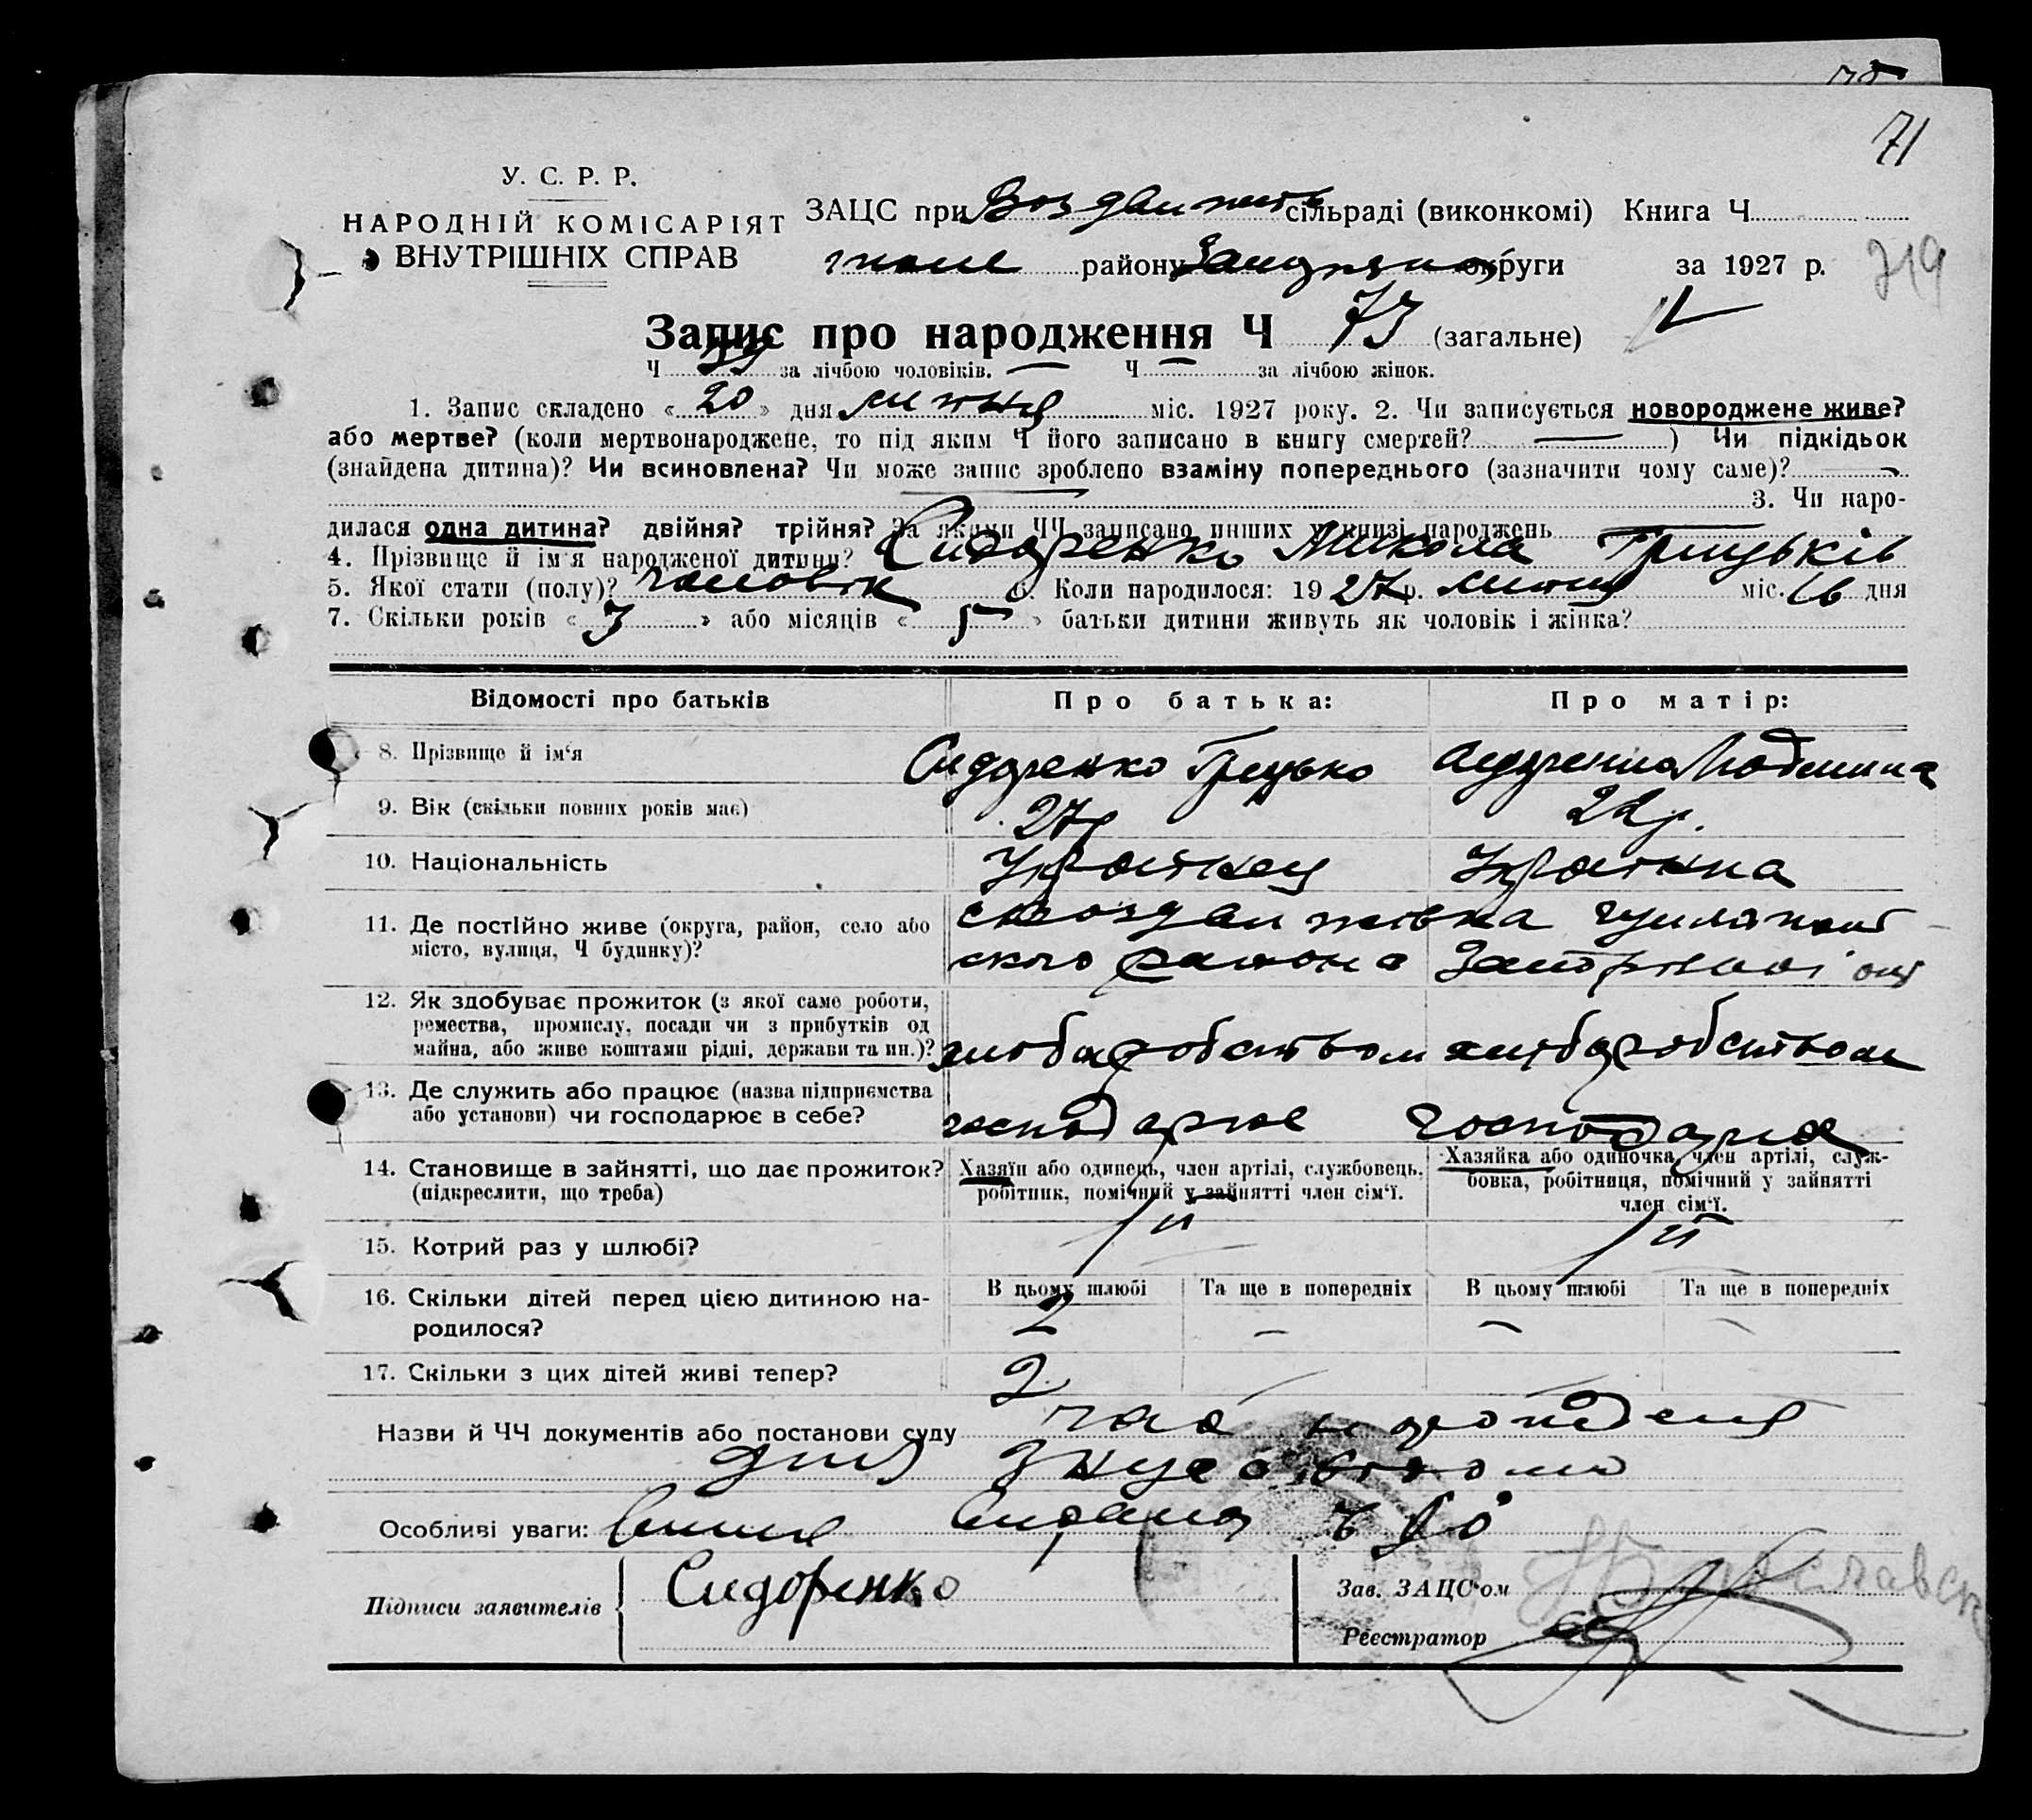 71
У. С. Р. Р.
НАРОДНІЙ КОМІСАРІЯТ
ВНУТРІШНІХ СПРАВ
ЗАЦС при сільраді (виконкомі) Книга Ч
району округи за 1927 р.
Запис про народження Ч 73 (загальне)
Ч 39 за лічбою чоловіків. — Ч — за лічбою жінок.
1. Запис складено « 20 » дня липня міс. 1927 року. 2. Чи записується новороджене живе?
або мертве? (коли мертвонароджене, то під яким Ч його записано в книгу смертей? — ) Чи підкідьок
(знайдена дитина)? Чи всиновлена? Чи може запис зроблено взаміну попереднього (зазначити чому саме)?
3. Чи наро-
дилася одна дитина? двійня? трійня? За якими ЧЧ записано инших у книзі народжень
4. Прізвище й ім'я народженої дитини? Сидоренко Микола Грицьків
5. Якої стати (полу)? чоловік 6. Коли народилося: 1927 р. липня міс. 16 дня
7. Скільки років « 3 » або місяців « 5 » батьки дитини живуть як чоловік і жінка?
Відомості про батьків Про батька: Про матір:
8. Прізвище й ім'я Сидоренко Грицько Сидоренко
9. Вік (скільки повних років має) 27 р 22 р.
10. Національність Українец Українка
11. Де постійно живе (округа, район, село або
місто, вулиця, Ч будинку)?
12. Як здобуває прожиток (з якої саме роботи,
ремества, промислу, посади чи з прибутків од
майна, або живе коштами рідні, держави та ин.)? хліборобством хліборобством
13. Де служить або працює (назва підприємства
або установи) чи господарює в себе? господарює господарює
14. Становище в зайнятті, що дає прожиток?
(підкреслити, що треба)
Хазяїн або одинець, член артілі, службовець,
робітник, помічний у зайнятті член сім'ї.
Хазяйка або одиночка, член артілі, служ-
бовка, робітниця, помічний у зайнятті
член сім'ї.
15. Котрий раз у шлюбі? 1й 1й
В цьому шлюбі Та ще в попередніх В цьому шлюбі Та ще в попередніх
16. Скільки дітей перед цією дитиною на-
родилося? 2 — — —
17. Скільки з цих дітей живі тепер? 2
Назви й ЧЧ документів або постанови суду
Особливі уваги:
Підписи заявителів Сидоренко
Зав. ЗАЦС'ом
Реєстратор